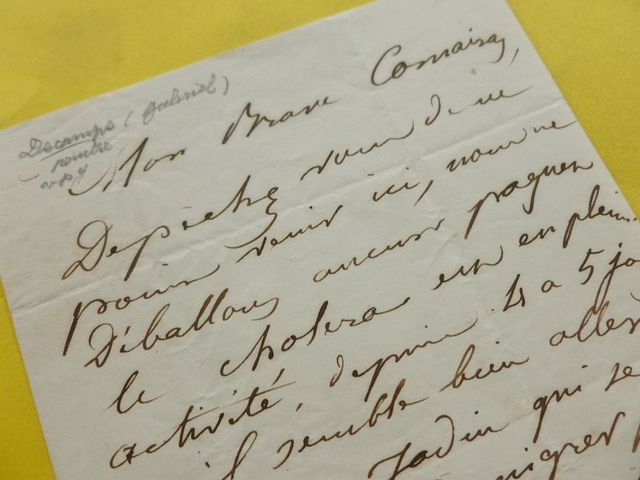 Descamps (Gabriel)
peintre
Mon Brave Comairas,
Depechez vous de ne
point venir ici, nous ne
Déballons aucuns paquets
le cholera est en plein
activité, depuis 4 a 5 jo
il semble bien aller
Jadin qui se